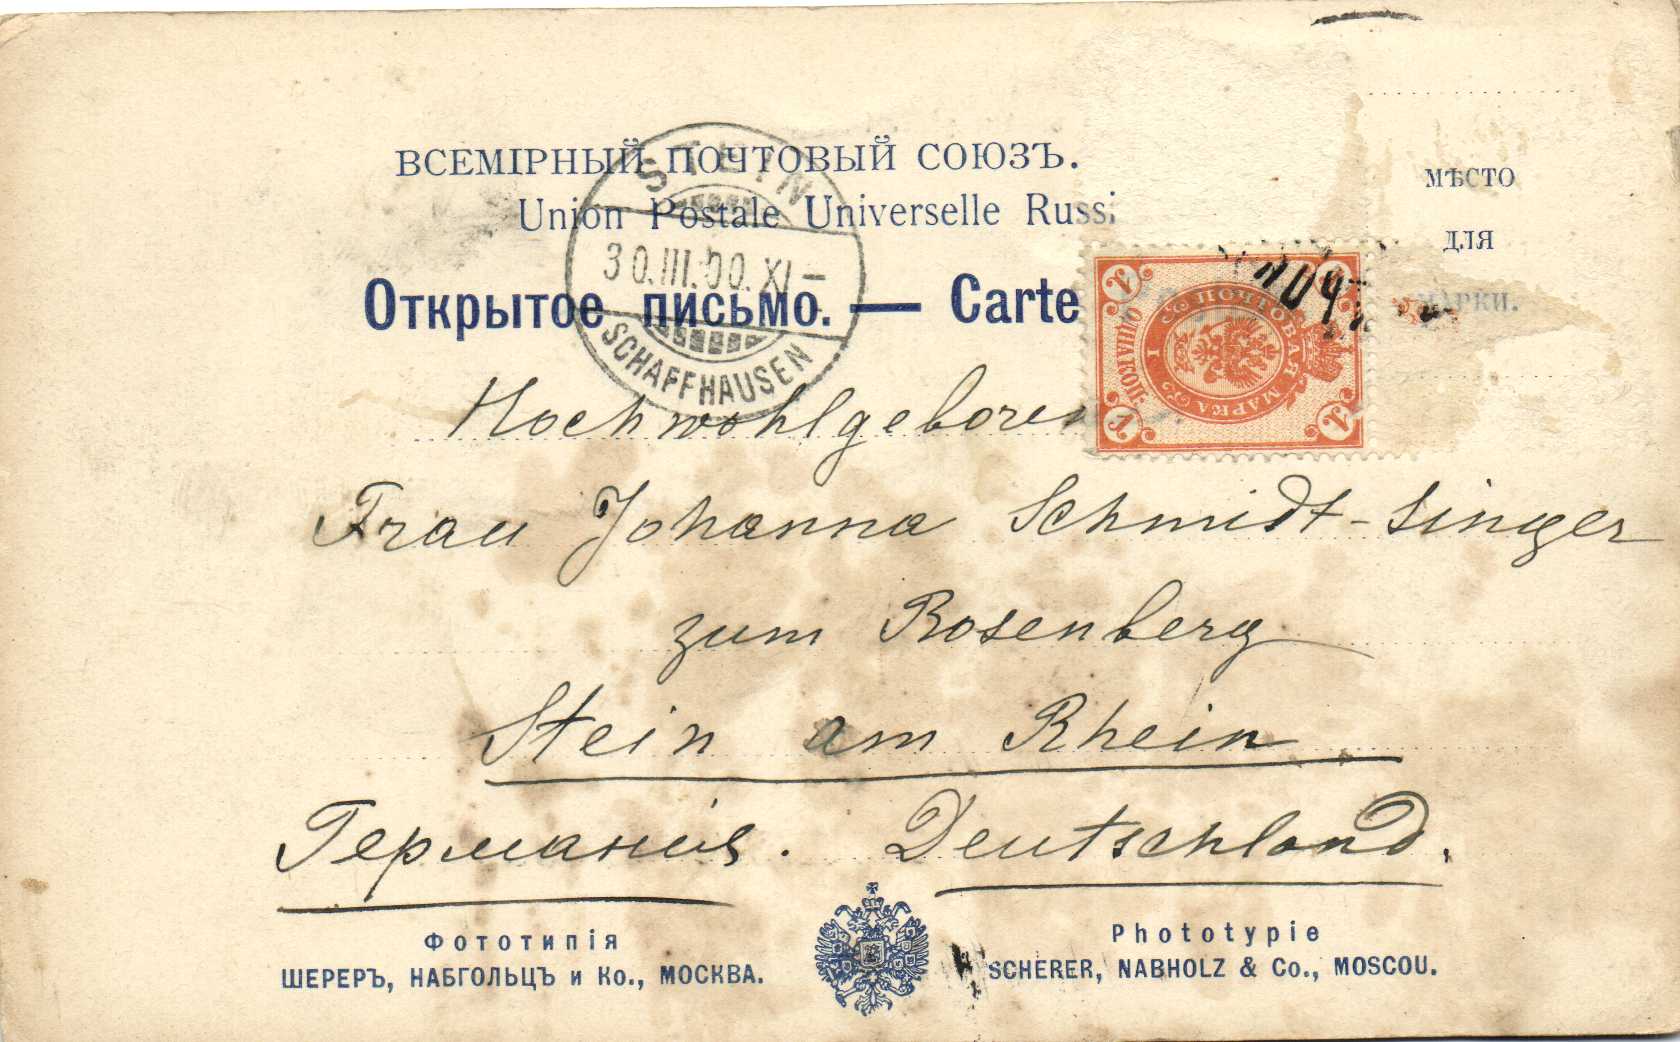 ВСЕМІРНЫЙ ПОЧТОВЫЙ СОЮЗЪ.
Union Postale Universelle Russi
Открытое письмо. — Carte
МѢСТО
ДЛЯ
МАРКИ.
STEIN
30.III.00.XI–
SCHAFFHAUSEN
ПОЧТОВАЯ МАРКА
1
Hochwohlgeboren
Frau Johanna Schmidt-Singer
zum Rosenberg
Stein am Rhein
Германія. Deutschland.
Фототипія
ШЕРЕРЪ, НАБГОЛЬЦЪ и Ко., МОСКВА.
Phototypie
SCHERER, NABHOLZ & Co., MOSCOU.